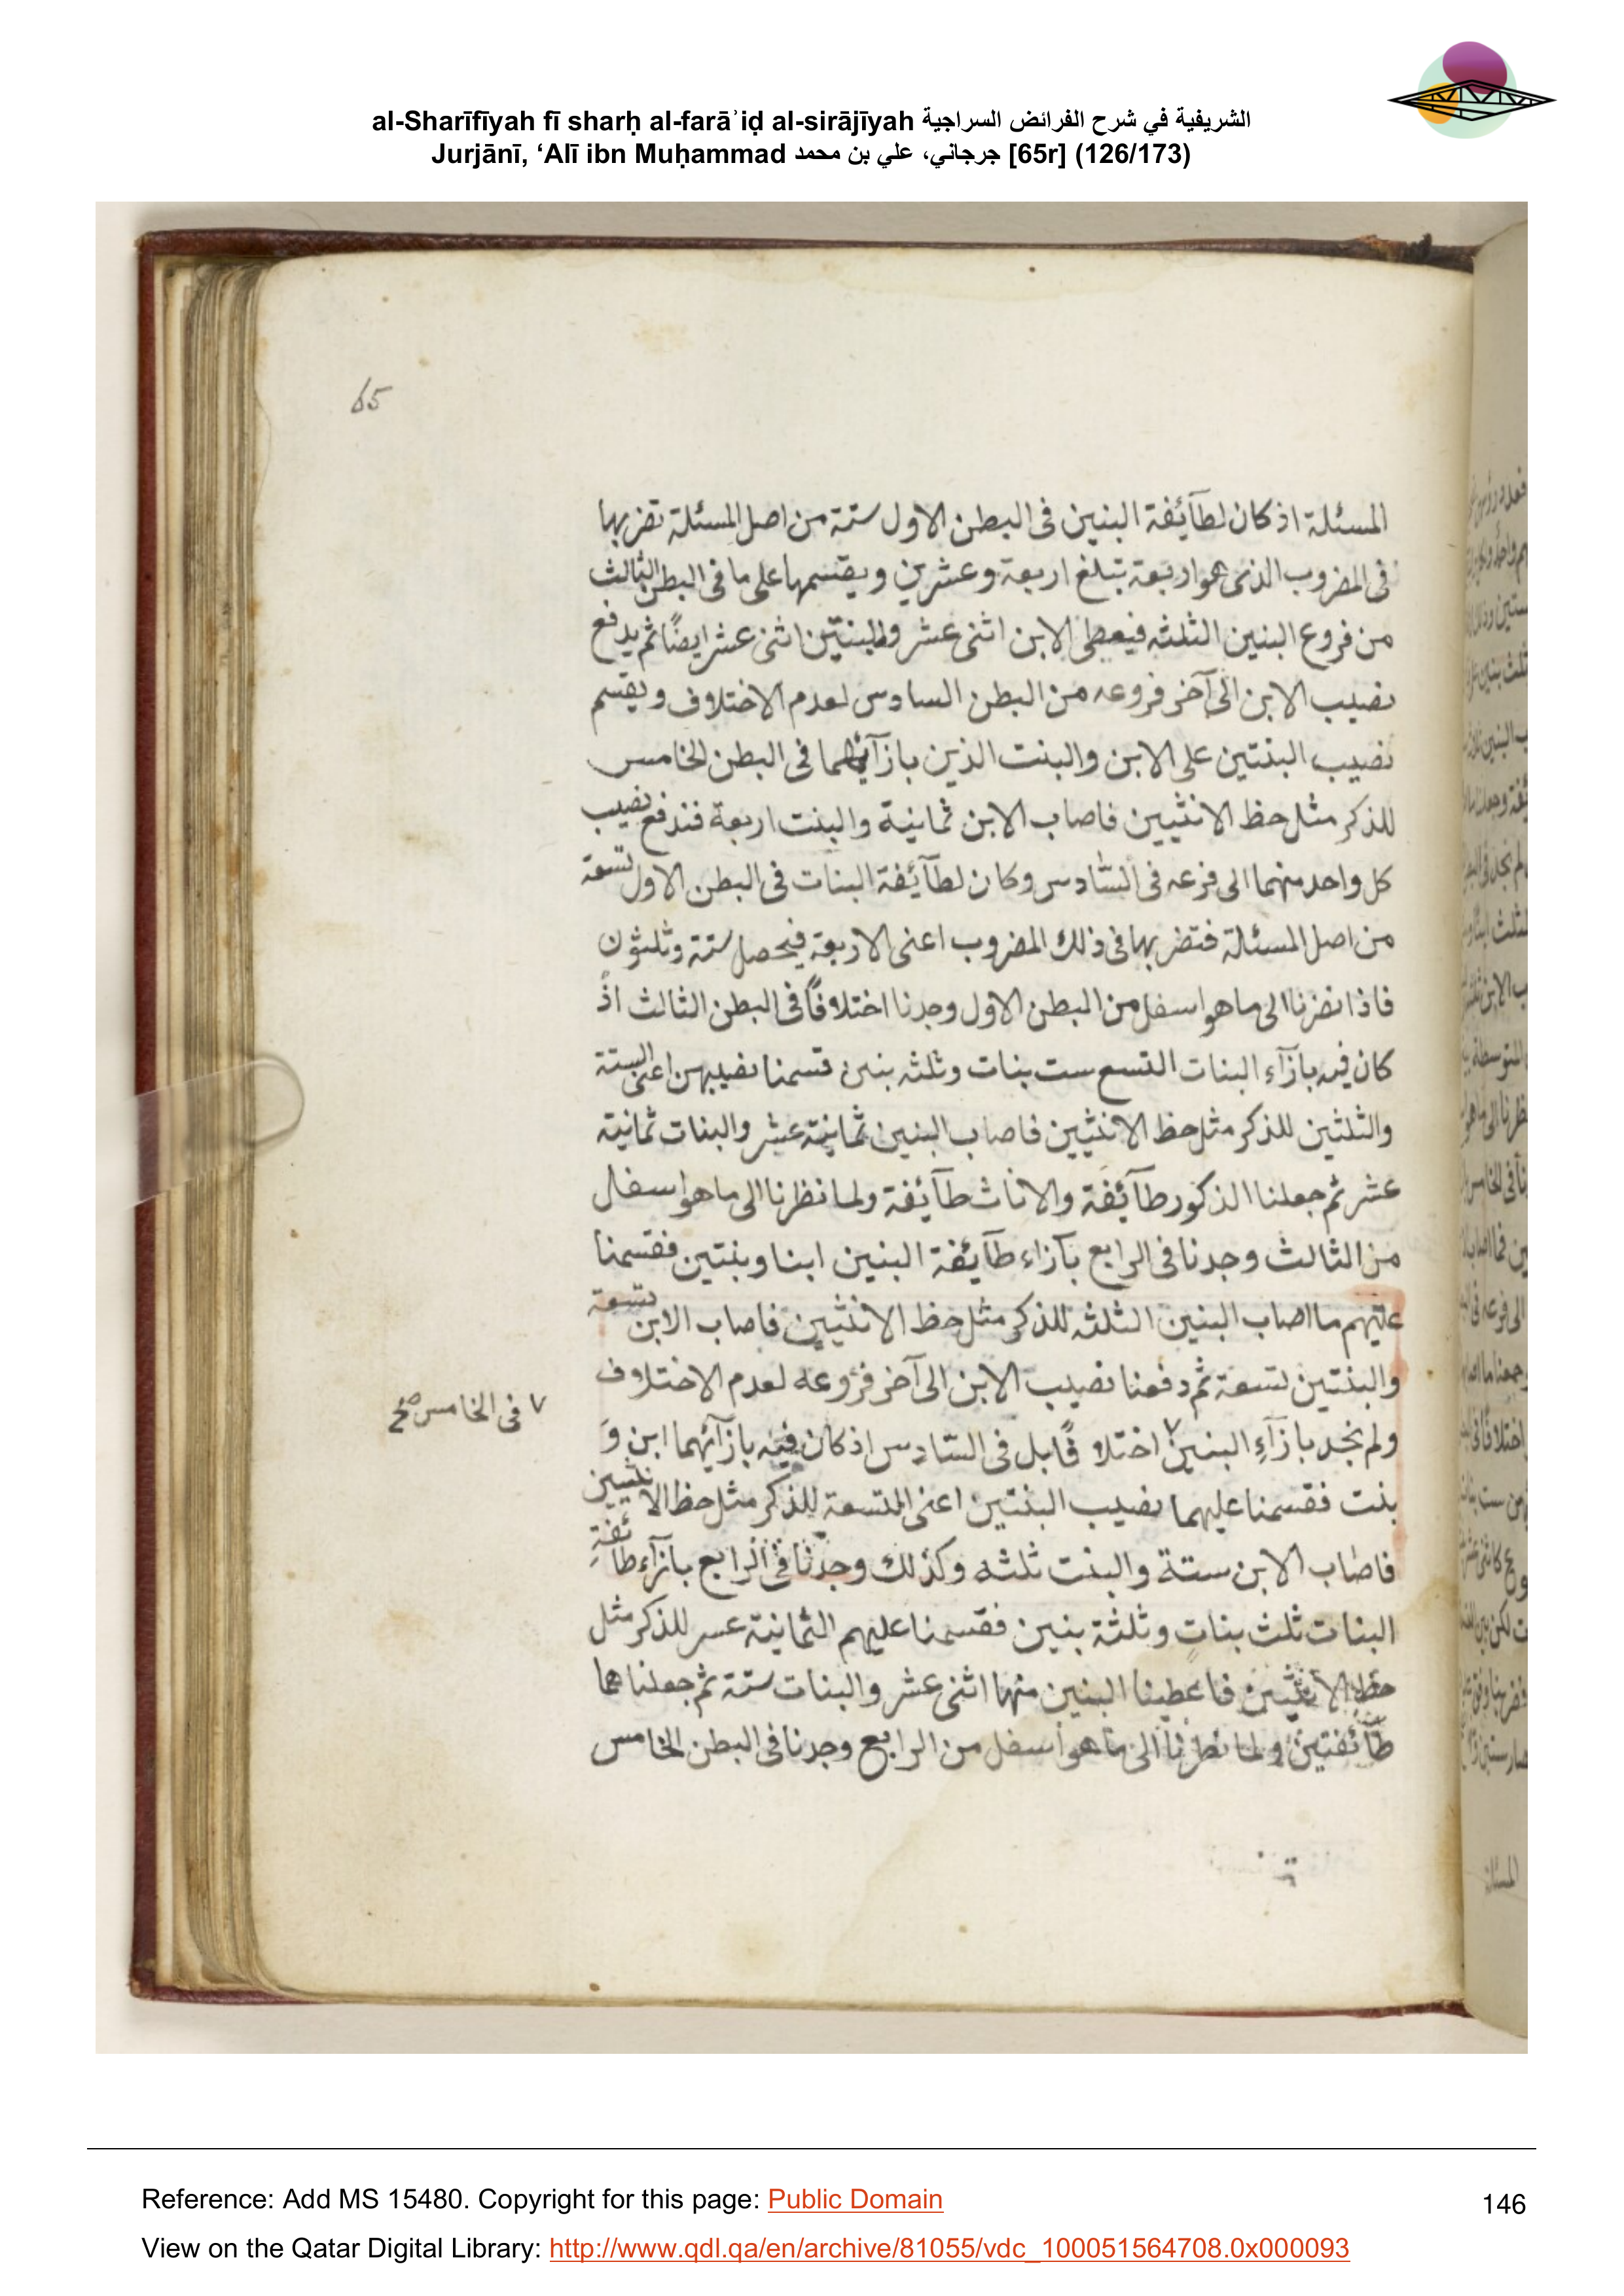 al-Sharīfīyah fī sharḥ al-farāʾiḍ al-sirājīyah الشريفية في شرح الفرائض السراجية
Jurjānī, ‘Alī ibn Muḥammad جرجاني، علي بن محمد [65r] (126/173)
65
المسئلة اذ كان لطآئفة البنين فى البطن الاول ستة من اصل المسئلة تضربها
فى المضروب الذى هو اربعة تبلغ اربعة وعشرين ويقسمها على ما فى البطن الثالث
من فروع البنين الثلثه فيعطى الابن اثنى عشر وللبنتين اثنى عشر ايضًا ثم يدفع
نصيب الابن الى آخر فروعه من البطن السادس لعدم الاختلاف ويقسم
نصيب البنتين على الابن والبنت الذين بازآئهما فى البطن الخامس
للذكر مثل حظ الانثيين فاصاب الابن ثمانية والبنت اربعة فندفع نصيب
كل واحد منهما الى فرعه فى السّادس وكان لطآئفة البنات فى البطن الاول تسعة
من اصل المسئلة فتضربها فى ذلك المضروب اعنى الاربعة فيحصل ستة وثلثون
فاذا نضرنا الى ما هو اسفل من البطن الاول وجدنا اختلافًا فى البطن الثالث اذ
كان فيه بازآء البنات التسع ست بنات وثلثه بنين قسمنا نصيبهن اعنى الستة
والثلثين للذكر مثل حظ الانثيين فاصاب البنين ثمانية عشر والبنات ثمانية
عشر ثم جعلنا الذكور طآئفة والاناث طآئفة ولما نظرنا الى ما هو اسفل
من الثالث وجدنا فى الرابع بآزاء طآئفة البنين ابنا وبنتين فقسمنا
عليهم ما اصاب البنين الثلثه للذكر مثل حظ الانثيين فاصاب الابن تسعة
والبنتين تسعة ثم دفعنا نصيب الابن الى آخر فروعه لعدم الاختلاف
ولم نجد بازآء البنين ٧ اختلا فًا بل فى السّادس اذ كان فيه بازآئهما ابن وَ
٧ فى الخامس صح
بنت فقسمنا عليهما نصيب البنتين اعنى التسعة للذكر مثل حظ الانثيين
فاصاب الابن ستة والبنت ثلثه وكذلك وجدنا فى الرابع بازآء طائفة
البنات ثلث بنات وثلثة بنين فقسمنا عليهم الثمانية عسر للذكر مثل
حظ الانثيين فاعطينا البنين منها اثنى عشر والبنات ستة ثم جعلناهما
طآئفتين ولما نظرنا الى ما هو اسفل من الرابع وجدنا فى البطن الخامس
Reference: Add MS 15480. Copyright for this page: Public Domain
146
View on the Qatar Digital Library: http://www.qdl.qa/en/archive/81055/vdc_100051564708.0x000093